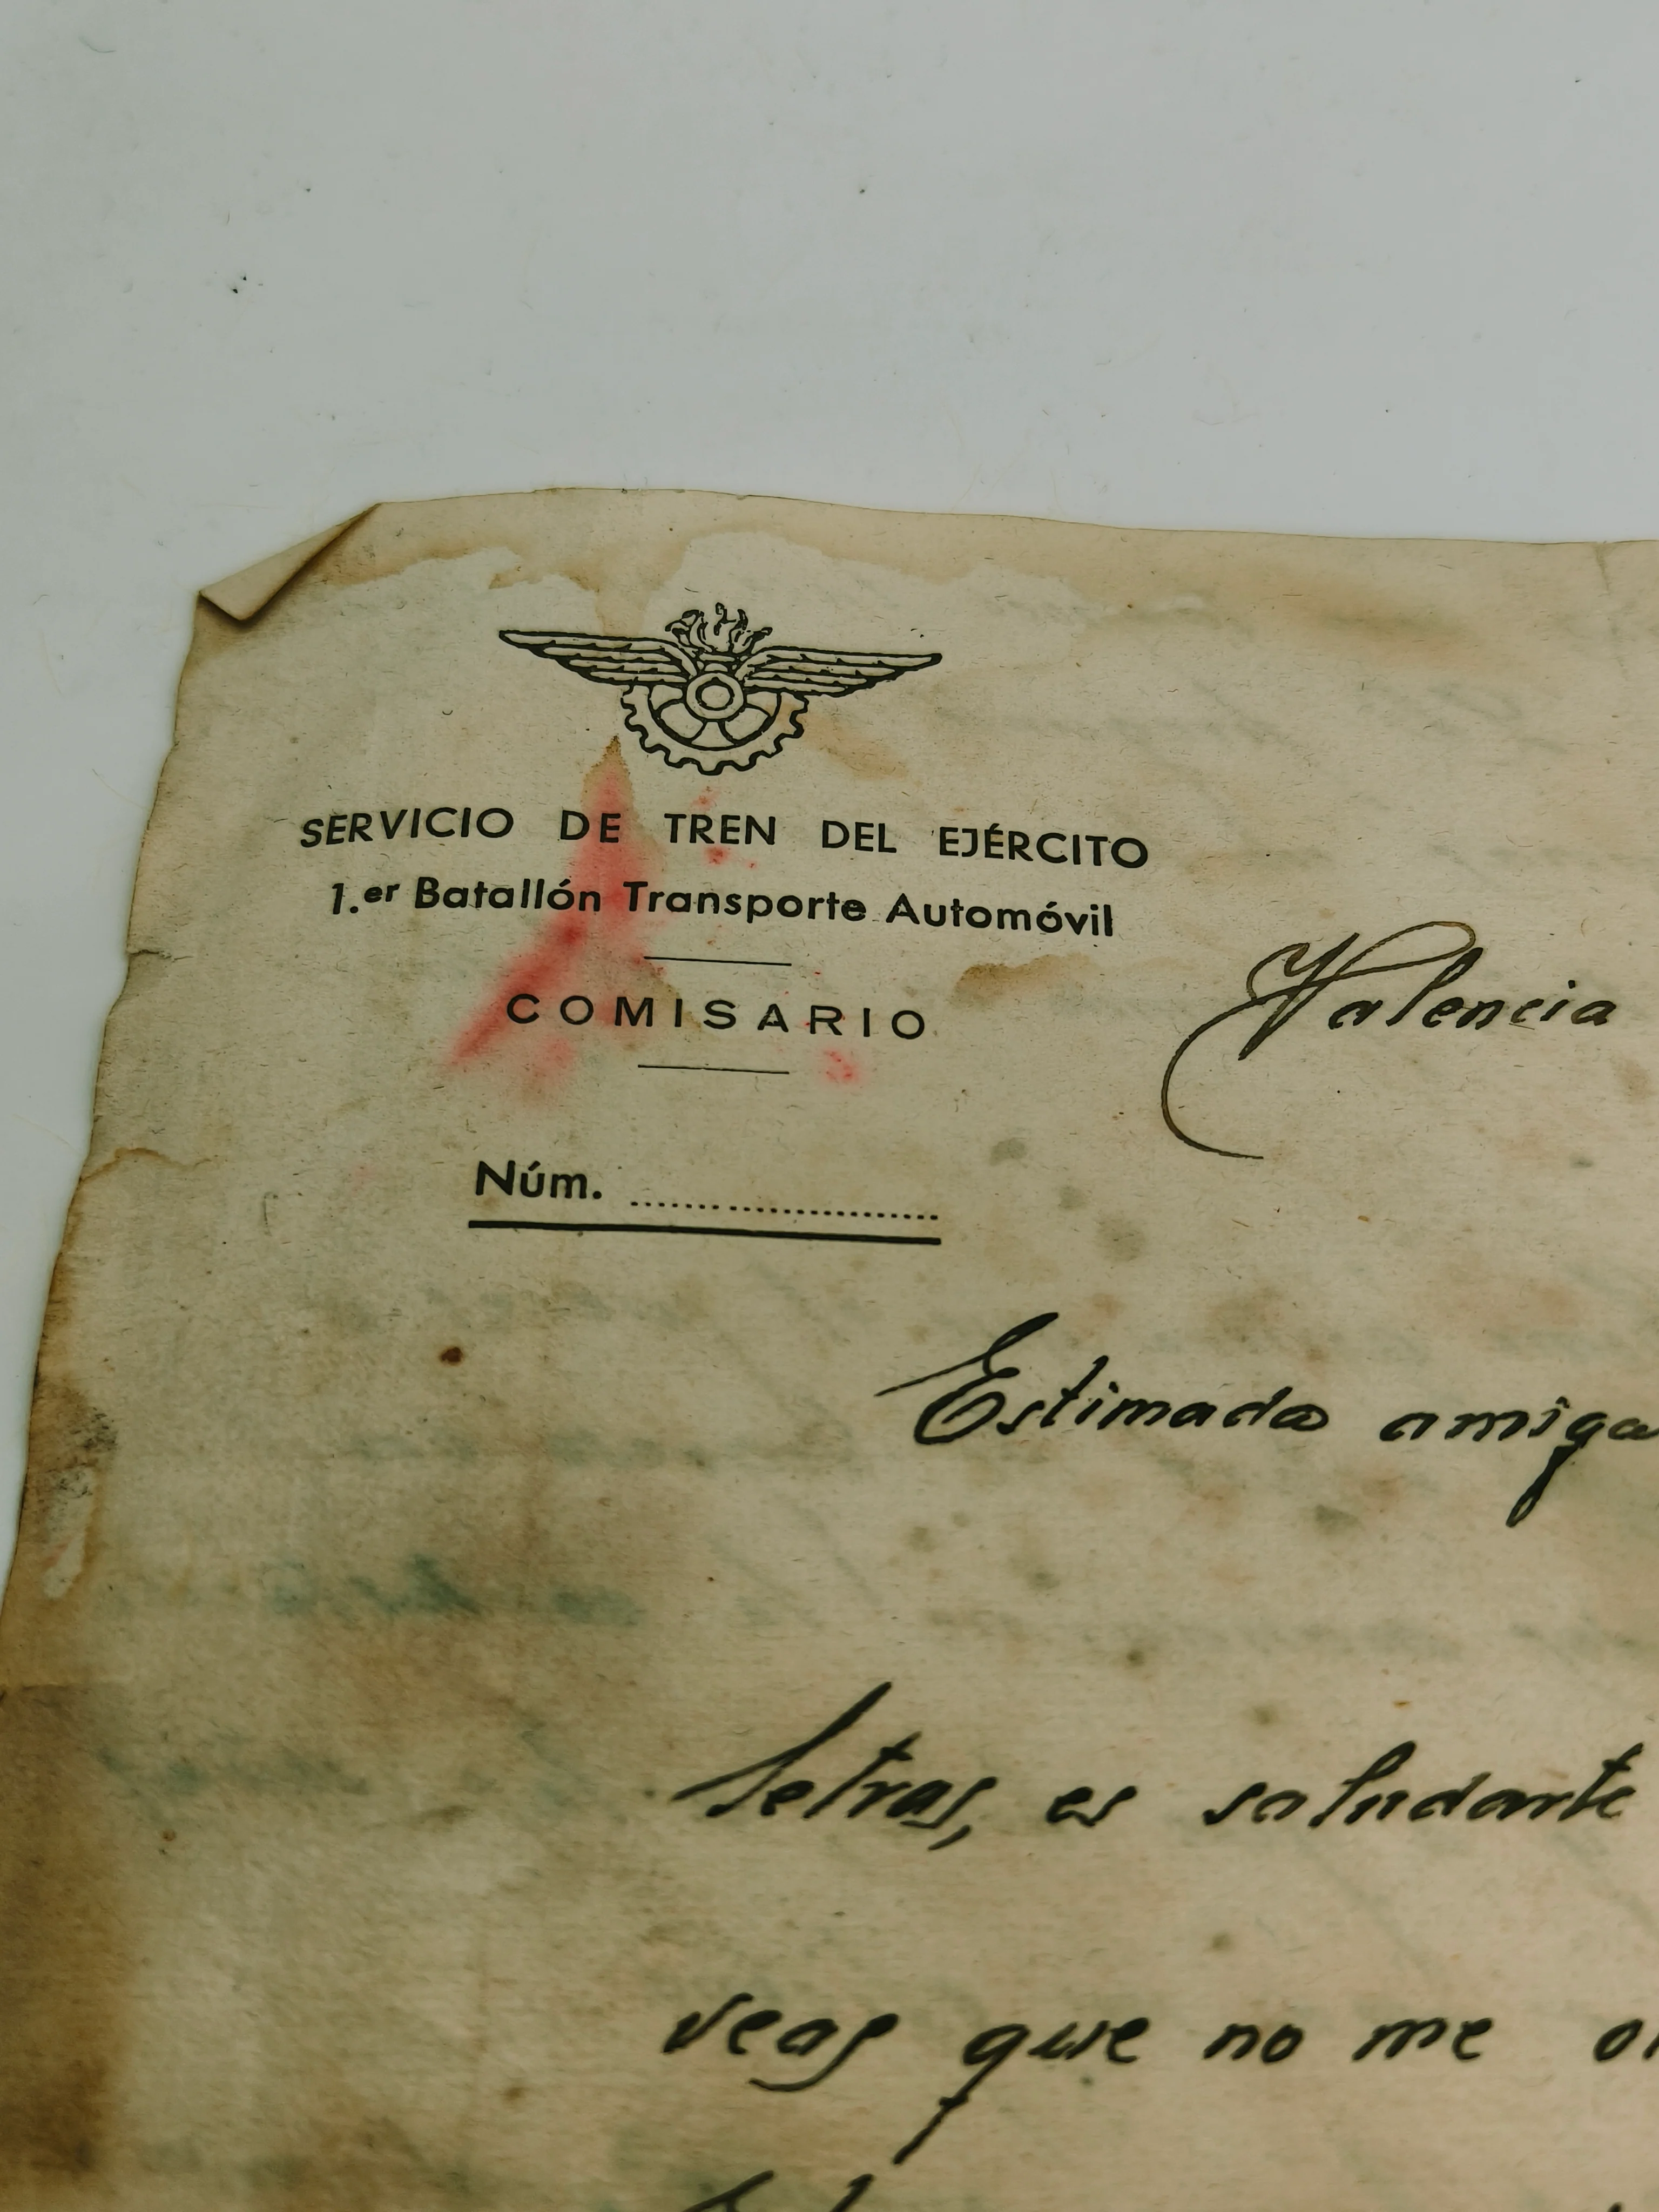 SERVICIO DE TREN DEL EJÉRCITO
1.er Batallón Transporte Automóvil
COMISARIO
Valencia
Núm. ....................
Estimada amiga
letras, es saludarte
veas que no me